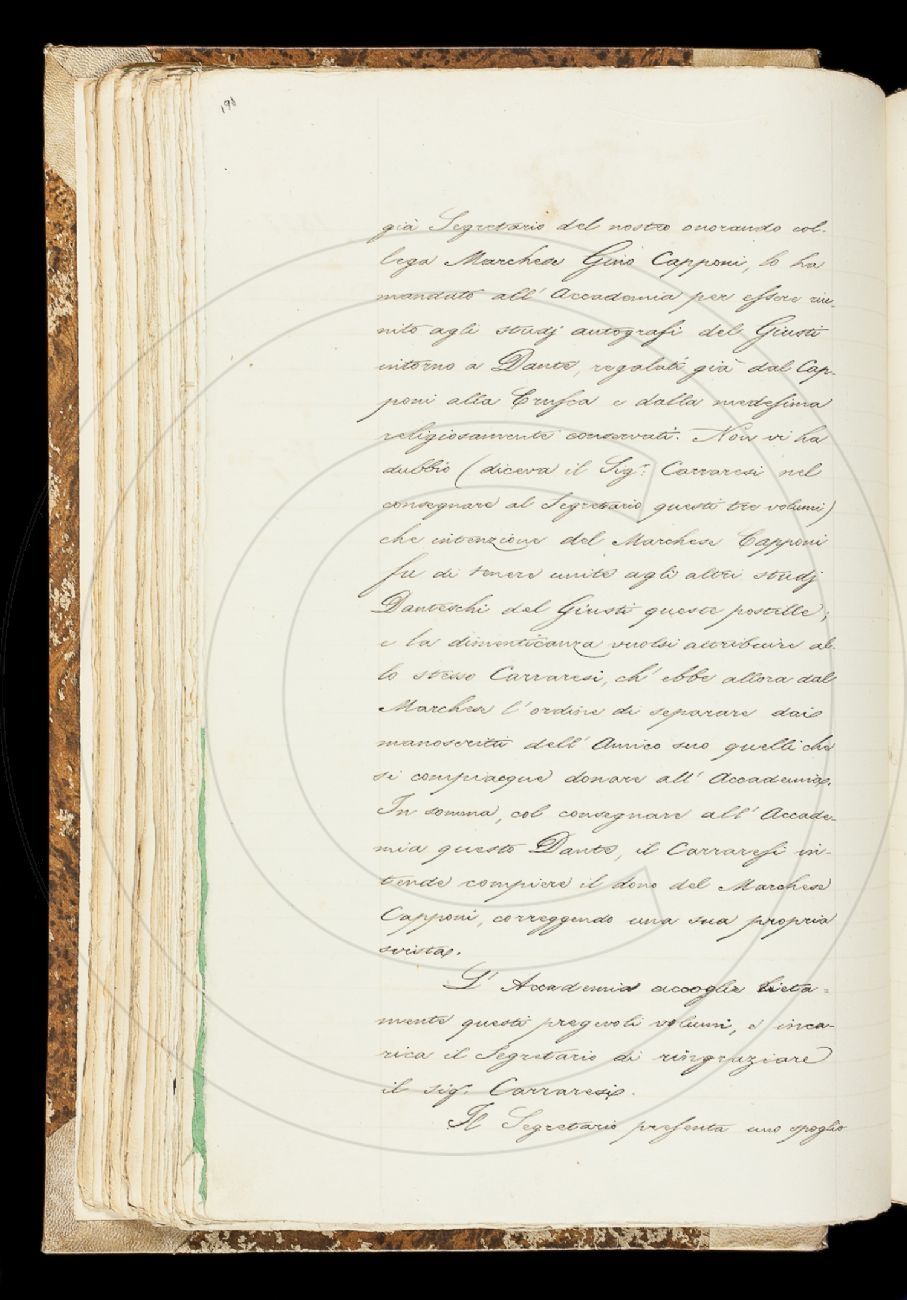 198
già Segretario del nostro onorando col-
lega Marchese Gino Capponi, lo ha
mandato all' Accademia per essere riu-
nito agli studj autografi del Giusti
intorno a Dante, regalati già dal Cap-
poni alla Crusca e dalla medesima
religiosamente conservati. Non vi ha
dubbio (diceva il Sig.r Carraresi nel
consegnare al Segretario questi tre volumi)
che intenzione del Marchese Capponi
fu di tenere unite agli altri studj
Danteschi del Giusti queste postille;
e la dimenticanza vuolsi attribuire al-
lo stesso Carraresi, ch' ebbe allora dal
Marchese l' ordine di separare dai
manoscritti dell' Amico suo quelli che
si compiacque donare all' Accademia.
In somma, col consegnare all' Accade-
mia questo Dante, il Carraresi in-
tende compiere il dono del Marchese
Capponi, correggendo una sua propria
svista.
L' Accademia accoglie lieta-
mente questi pregevoli volumi, e inca-
rica il Segretario di ringraziare
il sig.r Carraresi.
Il Segretario presenta uno spoglio